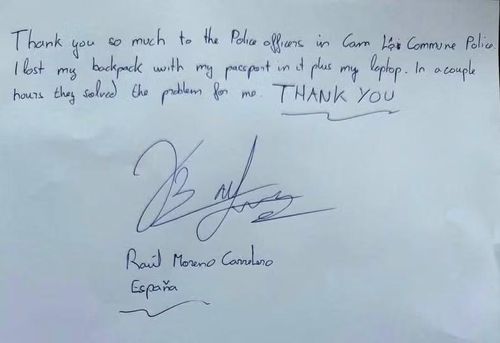 Thank you so much to the Police officers in Cam Commune Police
I lost my backpack with my passport in it plus my laptop. In a couple
hours they solved the problem for me. THANK YOU
Raúl Moreno Carretero
España